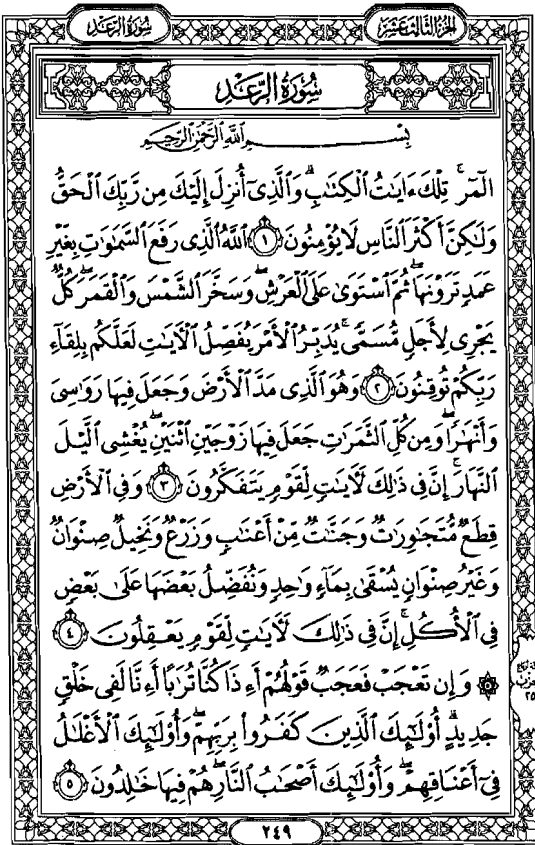 الجزء الثالث عشر
سُورَةُ الرَّعْدِ
سُورَةُ الرَّعْدِ
بِسْمِ اللَّهِ الرَّحْمَٰنِ الرَّحِيمِ
الٓمٓرۚ تِلْكَ ءَايَٰتُ ٱلْكِتَٰبِۗ وَٱلَّذِىٓ أُنزِلَ إِلَيْكَ مِن رَّبِّكَ ٱلْحَقُّ
وَلَٰكِنَّ أَكْثَرَ ٱلنَّاسِ لَا يُؤْمِنُونَ ١ ٱللَّهُ ٱلَّذِى رَفَعَ ٱلسَّمَٰوَٰتِ بِغَيْرِ
عَمَدٍ تَرَوْنَهَاۖ ثُمَّ ٱسْتَوَىٰ عَلَى ٱلْعَرْشِۖ وَسَخَّرَ ٱلشَّمْسَ وَٱلْقَمَرَۖ كُلٌّ
يَجْرِى لِأَجَلٍ مُّسَمًّىۚ يُدَبِّرُ ٱلْأَمْرَ يُفَصِّلُ ٱلْءَايَٰتِ لَعَلَّكُم بِلِقَآءِ
رَبِّكُمْ تُوقِنُونَ ٢ وَهُوَ ٱلَّذِى مَدَّ ٱلْأَرْضَ وَجَعَلَ فِيهَا رَوَٰسِىَ
وَأَنْهَٰرًاۖ وَمِن كُلِّ ٱلثَّمَرَٰتِ جَعَلَ فِيهَا زَوْجَيْنِ ٱثْنَيْنِۖ يُغْشِى ٱلَّيْلَ
ٱلنَّهَارَۚ إِنَّ فِى ذَٰلِكَ لَءَايَٰتٍ لِّقَوْمٍ يَتَفَكَّرُونَ ٣ وَفِى ٱلْأَرْضِ
قِطَعٌ مُّتَجَٰوِرَٰتٌ وَجَنَّٰتٌ مِّنْ أَعْنَٰبٍ وَزَرْعٌ وَنَخِيلٌ صِنْوَانٌ
وَغَيْرُ صِنْوَانٍ يُسْقَىٰ بِمَآءٍ وَٰحِدٍ وَنُفَضِّلُ بَعْضَهَا عَلَىٰ بَعْضٍ
فِى ٱلْأُكُلِۚ إِنَّ فِى ذَٰلِكَ لَءَايَٰتٍ لِّقَوْمٍ يَعْقِلُونَ ٤
۞ وَإِن تَعْجَبْ فَعَجَبٌ قَوْلُهُمْ أَءِذَا كُنَّا تُرَٰبًا أَءِنَّا لَفِى خَلْقٍ
جَدِيدٍۗ أُو۟لَٰٓئِكَ ٱلَّذِينَ كَفَرُوا۟ بِرَبِّهِمْۖ وَأُو۟لَٰٓئِكَ ٱلْأَغْلَٰلُ
فِىٓ أَعْنَاقِهِمْۖ وَأُو۟لَٰٓئِكَ أَصْحَٰبُ ٱلنَّارِۖ هُمْ فِيهَا خَٰلِدُونَ ٥
الحزب
٢٥
٢٤٩